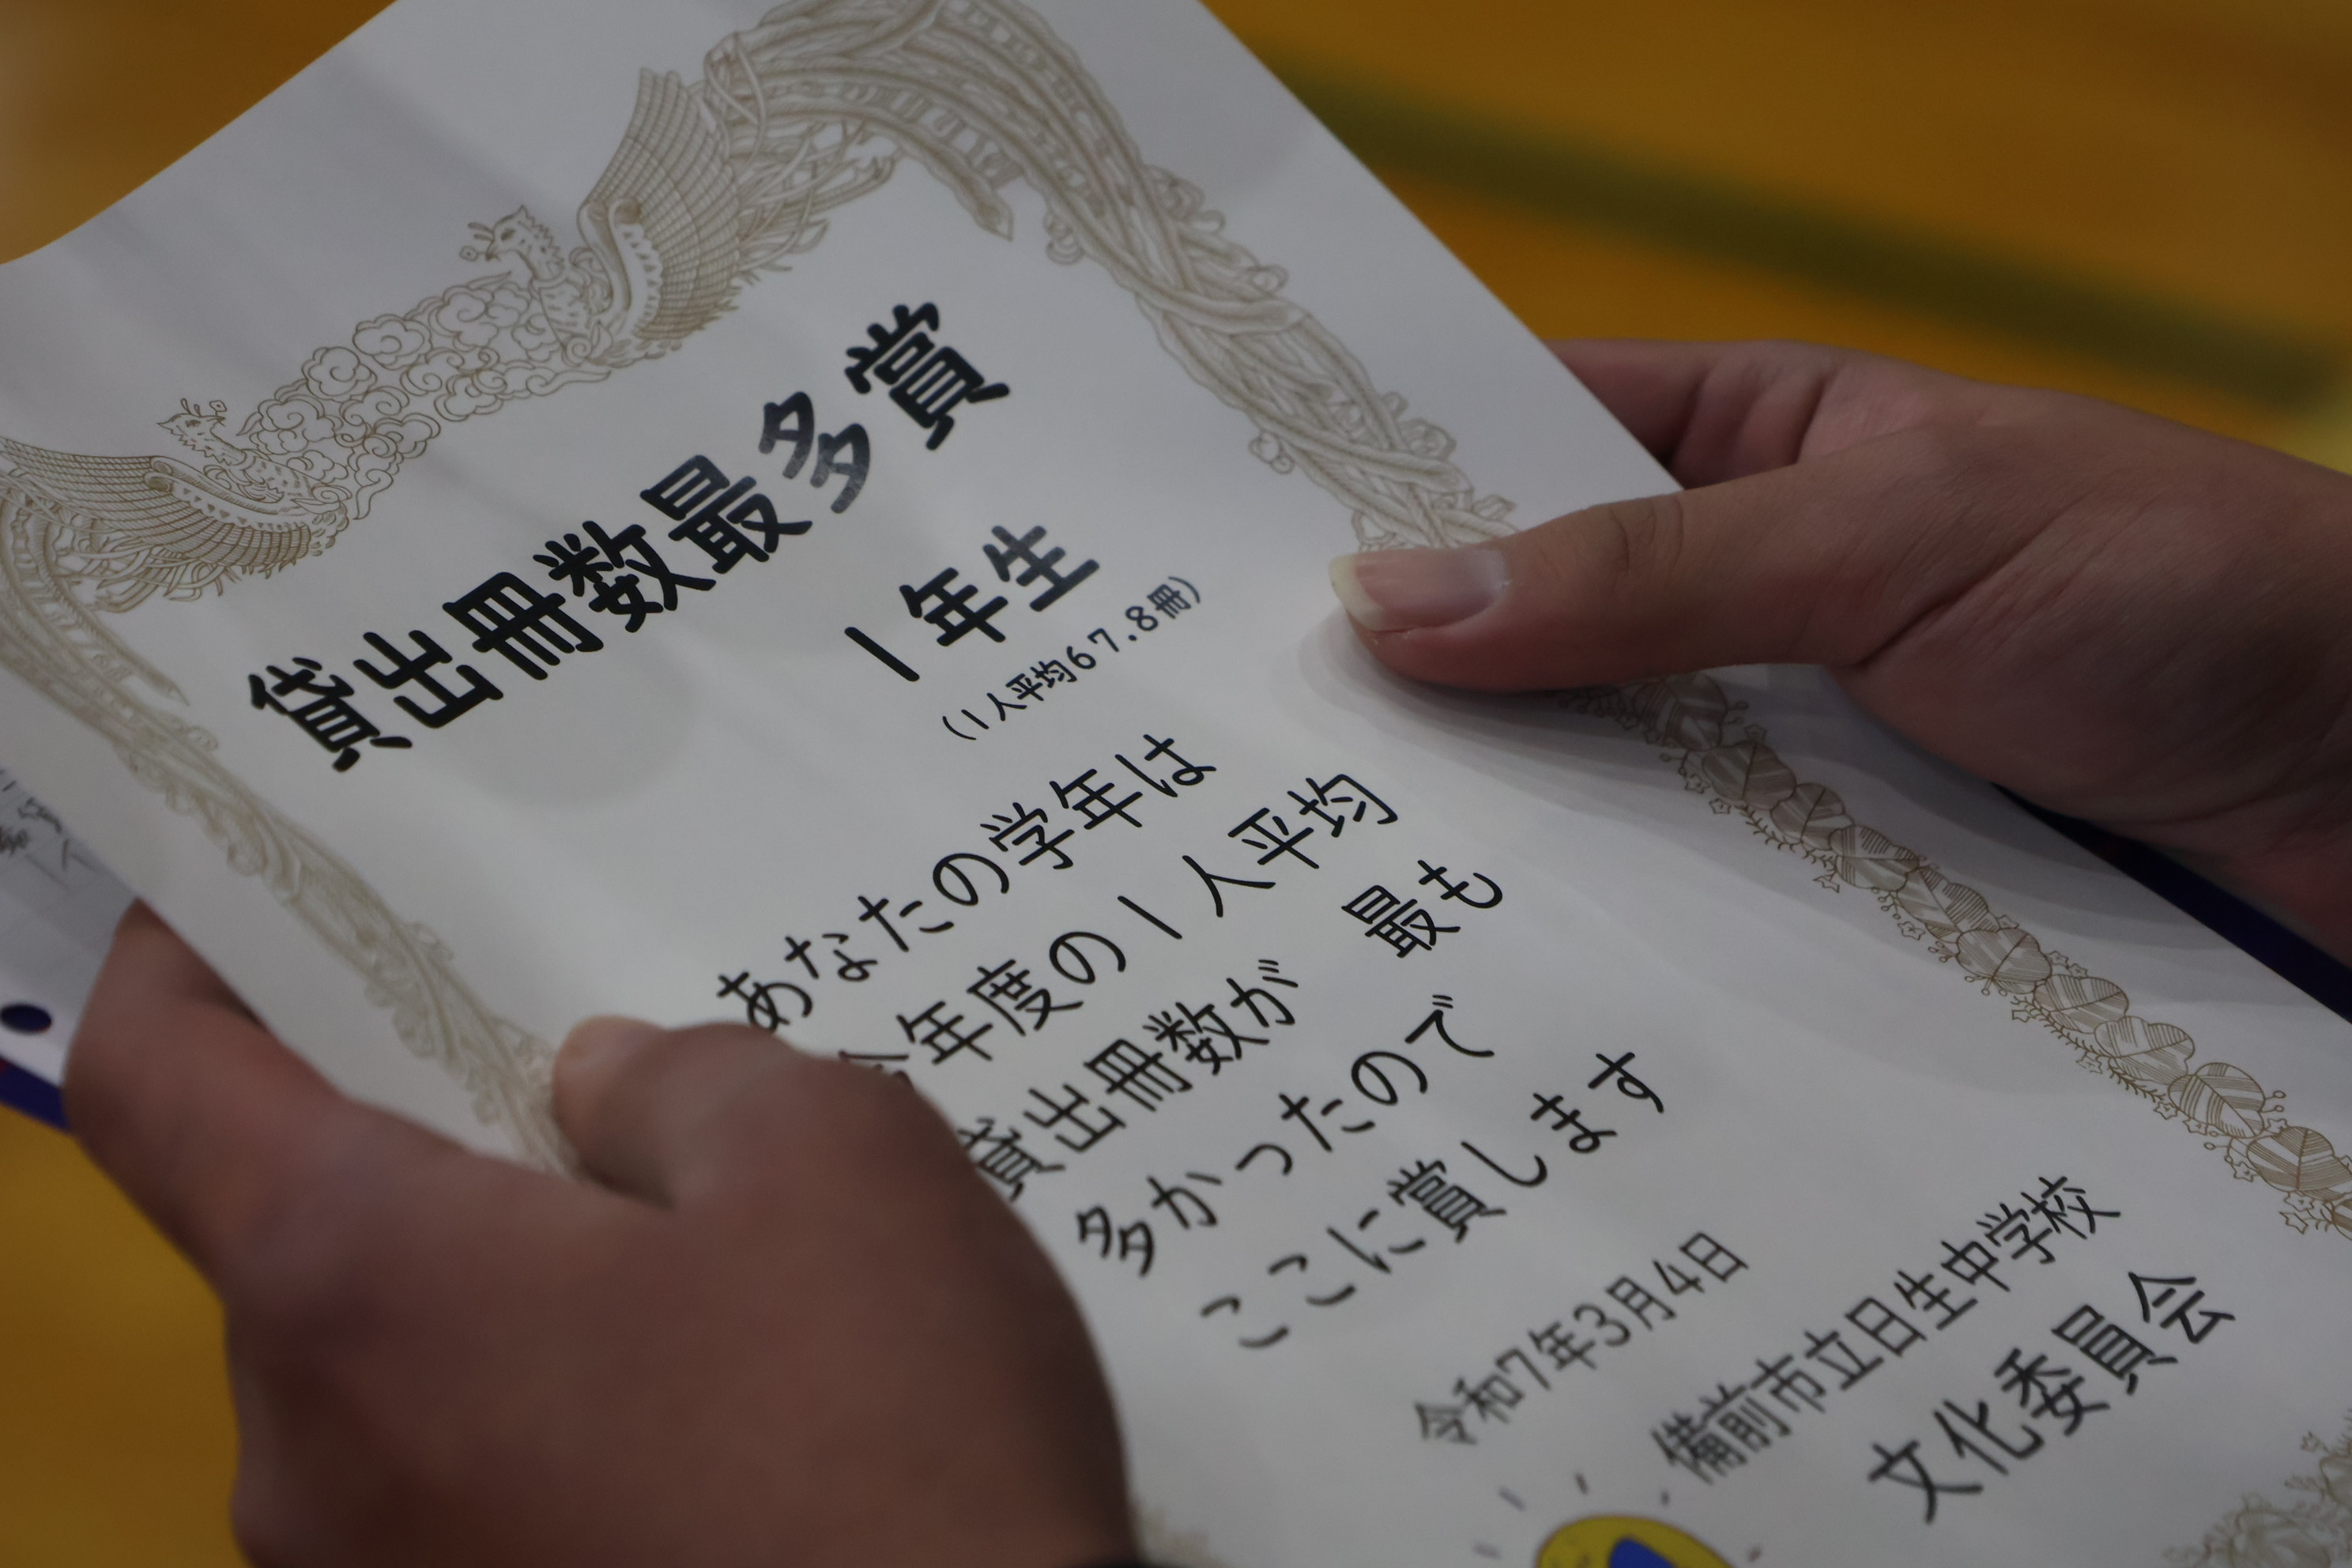 貸出冊数最多賞
1年生
(1人平均67.8冊)
あなたの学年は
今年度の1人平均
貸出冊数が 最も
多かったので
ここに賞します
令和7年3月4日
備前市立日生中学校
文化委員会